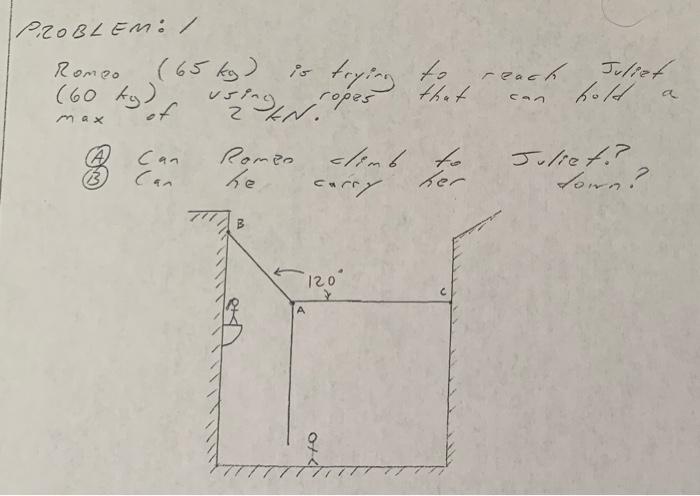 PROBLEM: 1
Romeo (65 kg) is trying to reach Juliet
(60 kg) using ropes that can hold a
max of 2 kN.
(A) Can Romeo climb to Juliet?
(B) Can he carry her down?
B
120°
A
C